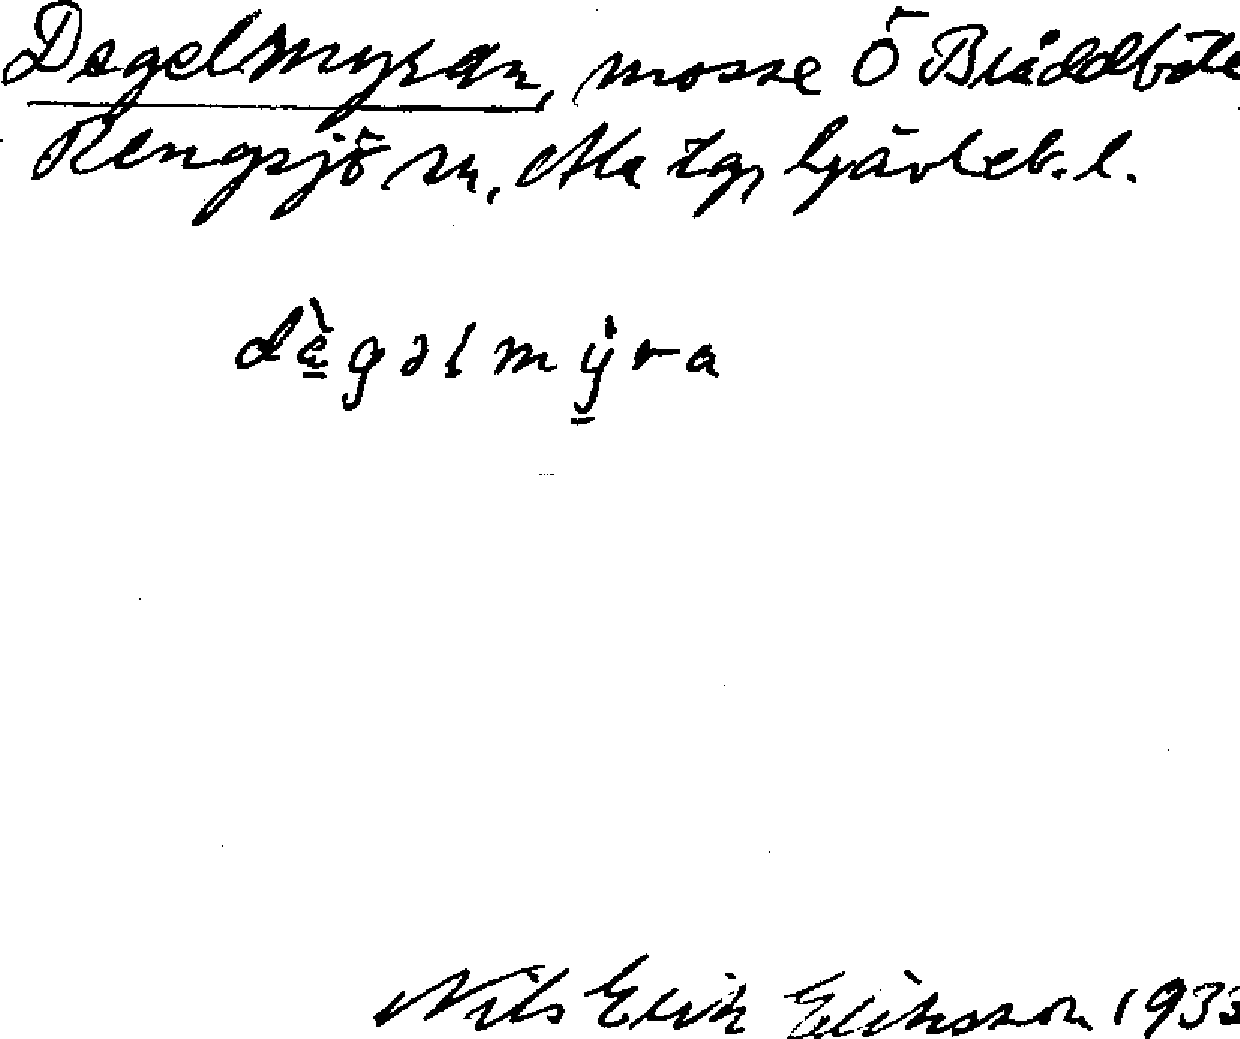 Degelmyran, mosse Ö Bräddbäck
Rengsjö sn, Ala tg, Gävleb. l.
dè̱gəlmẏ̱ra
Nils Erik Eriksson 1933